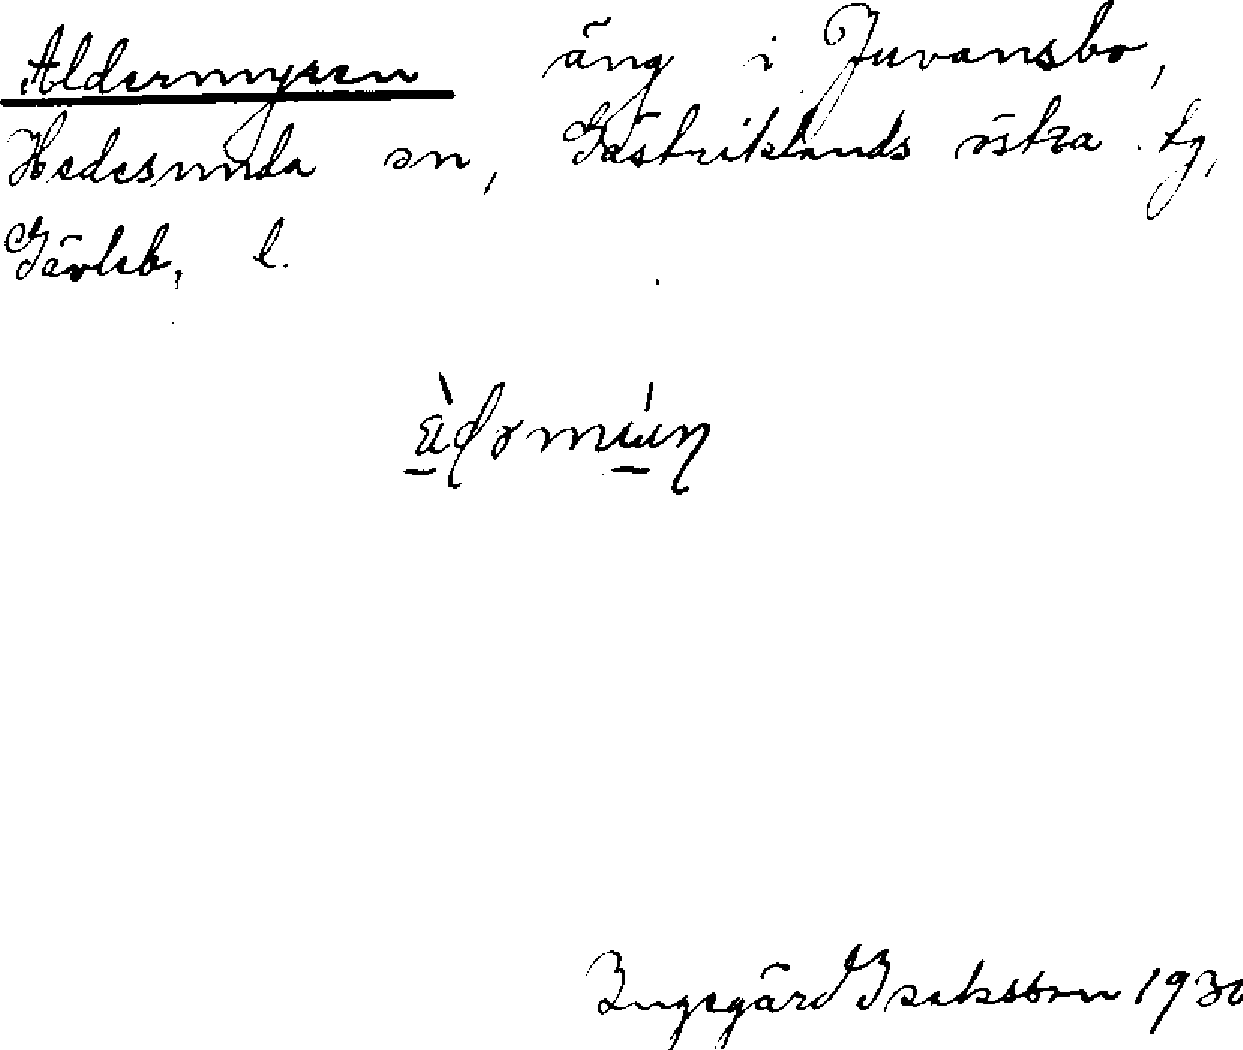 Aldermyren äng i Juvansbo,
Hedesunda sn, Gästriklands östra tg,
Gävleb. l.
Ingegärd Isaksson 1930